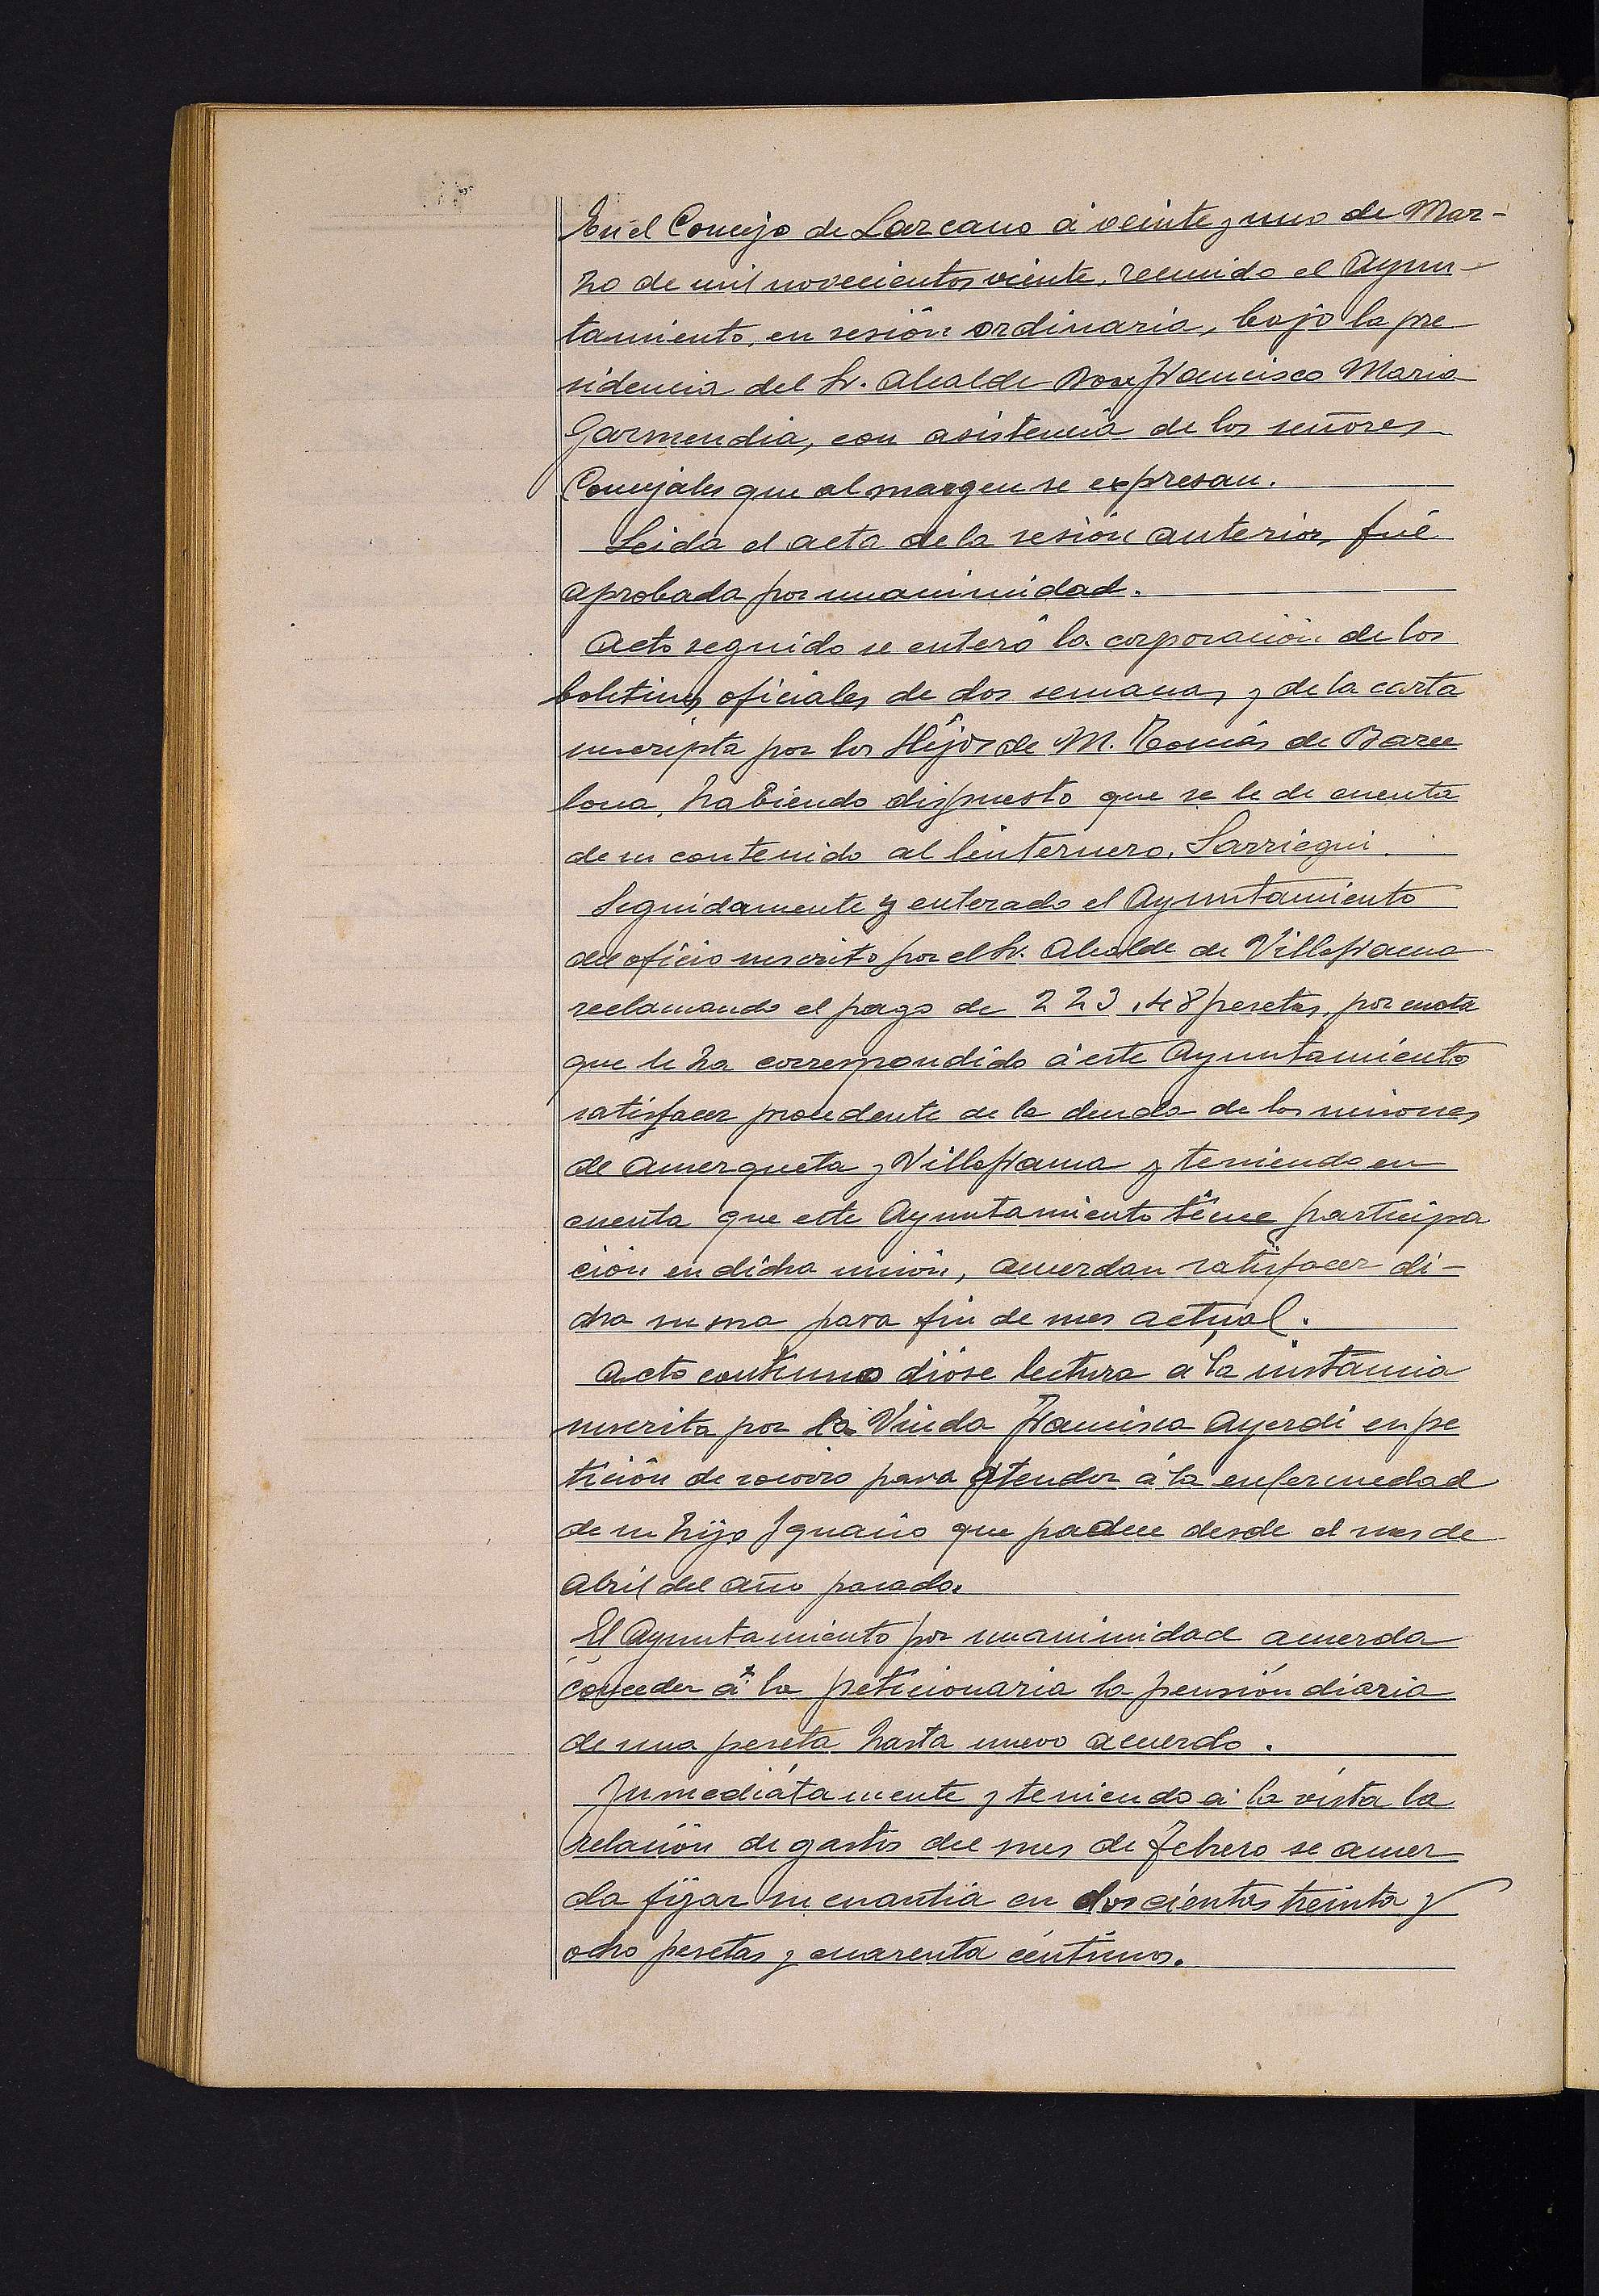 En el Concejo de Lazcano á veinte y uno de Mar-
zo de mil novecientos veinte, reunido el Ayun-
tamiento, en sesión ordinaria, bajo la pre
sidencia del Sr. Alcalde Don Francisco Maria
Garmendia, con asistencia de los señores
Concejales que al margen se expresan.
Leida el acta de la sesión anterior, fué
aprobada por unanimidad.
Acto seguido se enteró la corporación de los
boletines oficiales de dos semanas y de la carta
suscripta por los Hijos de M. Tomás de Barce
lona, habiendo dispuesto que se le de cuenta
de su contenido al linternero, Sarriegui.
Seguidamente y enterado el Ayuntamiento
del oficio suscrito por el Sr. Alcalde de Villafranca
reclamando el pago de 223,48 pesetas, por cuota
que le ha correspondido á este Ayuntamiento
satisfacer procedente de la deuda de las uniones
de Amezqueta y Villafranca y teniendo en
cuenta que este Ayuntamiento tiene participa
ción en dicha unión, acuerdan satisfacer di-
cha suma para fin de mes actual.
Acto continuo dióse lectura á la instancia
suscrita por la Viuda Francisca Ayerdi en pe
tición de socorro para atender á la enfermedad
de su hijo Ignacio que padece desde el mes de
Abril del año pasado.
El Ayuntamiento por unanimidad acuerda
conceder á la peticionaria la pensión diaria
de una peseta hasta nuevo acuerdo.
Inmediátamente y teniendo á la vista la
relación de gastos del mes de Febrero se acuer
da fijar su cuantia en doscientas treinta y
ocho pesetas y cuarenta céntimos.